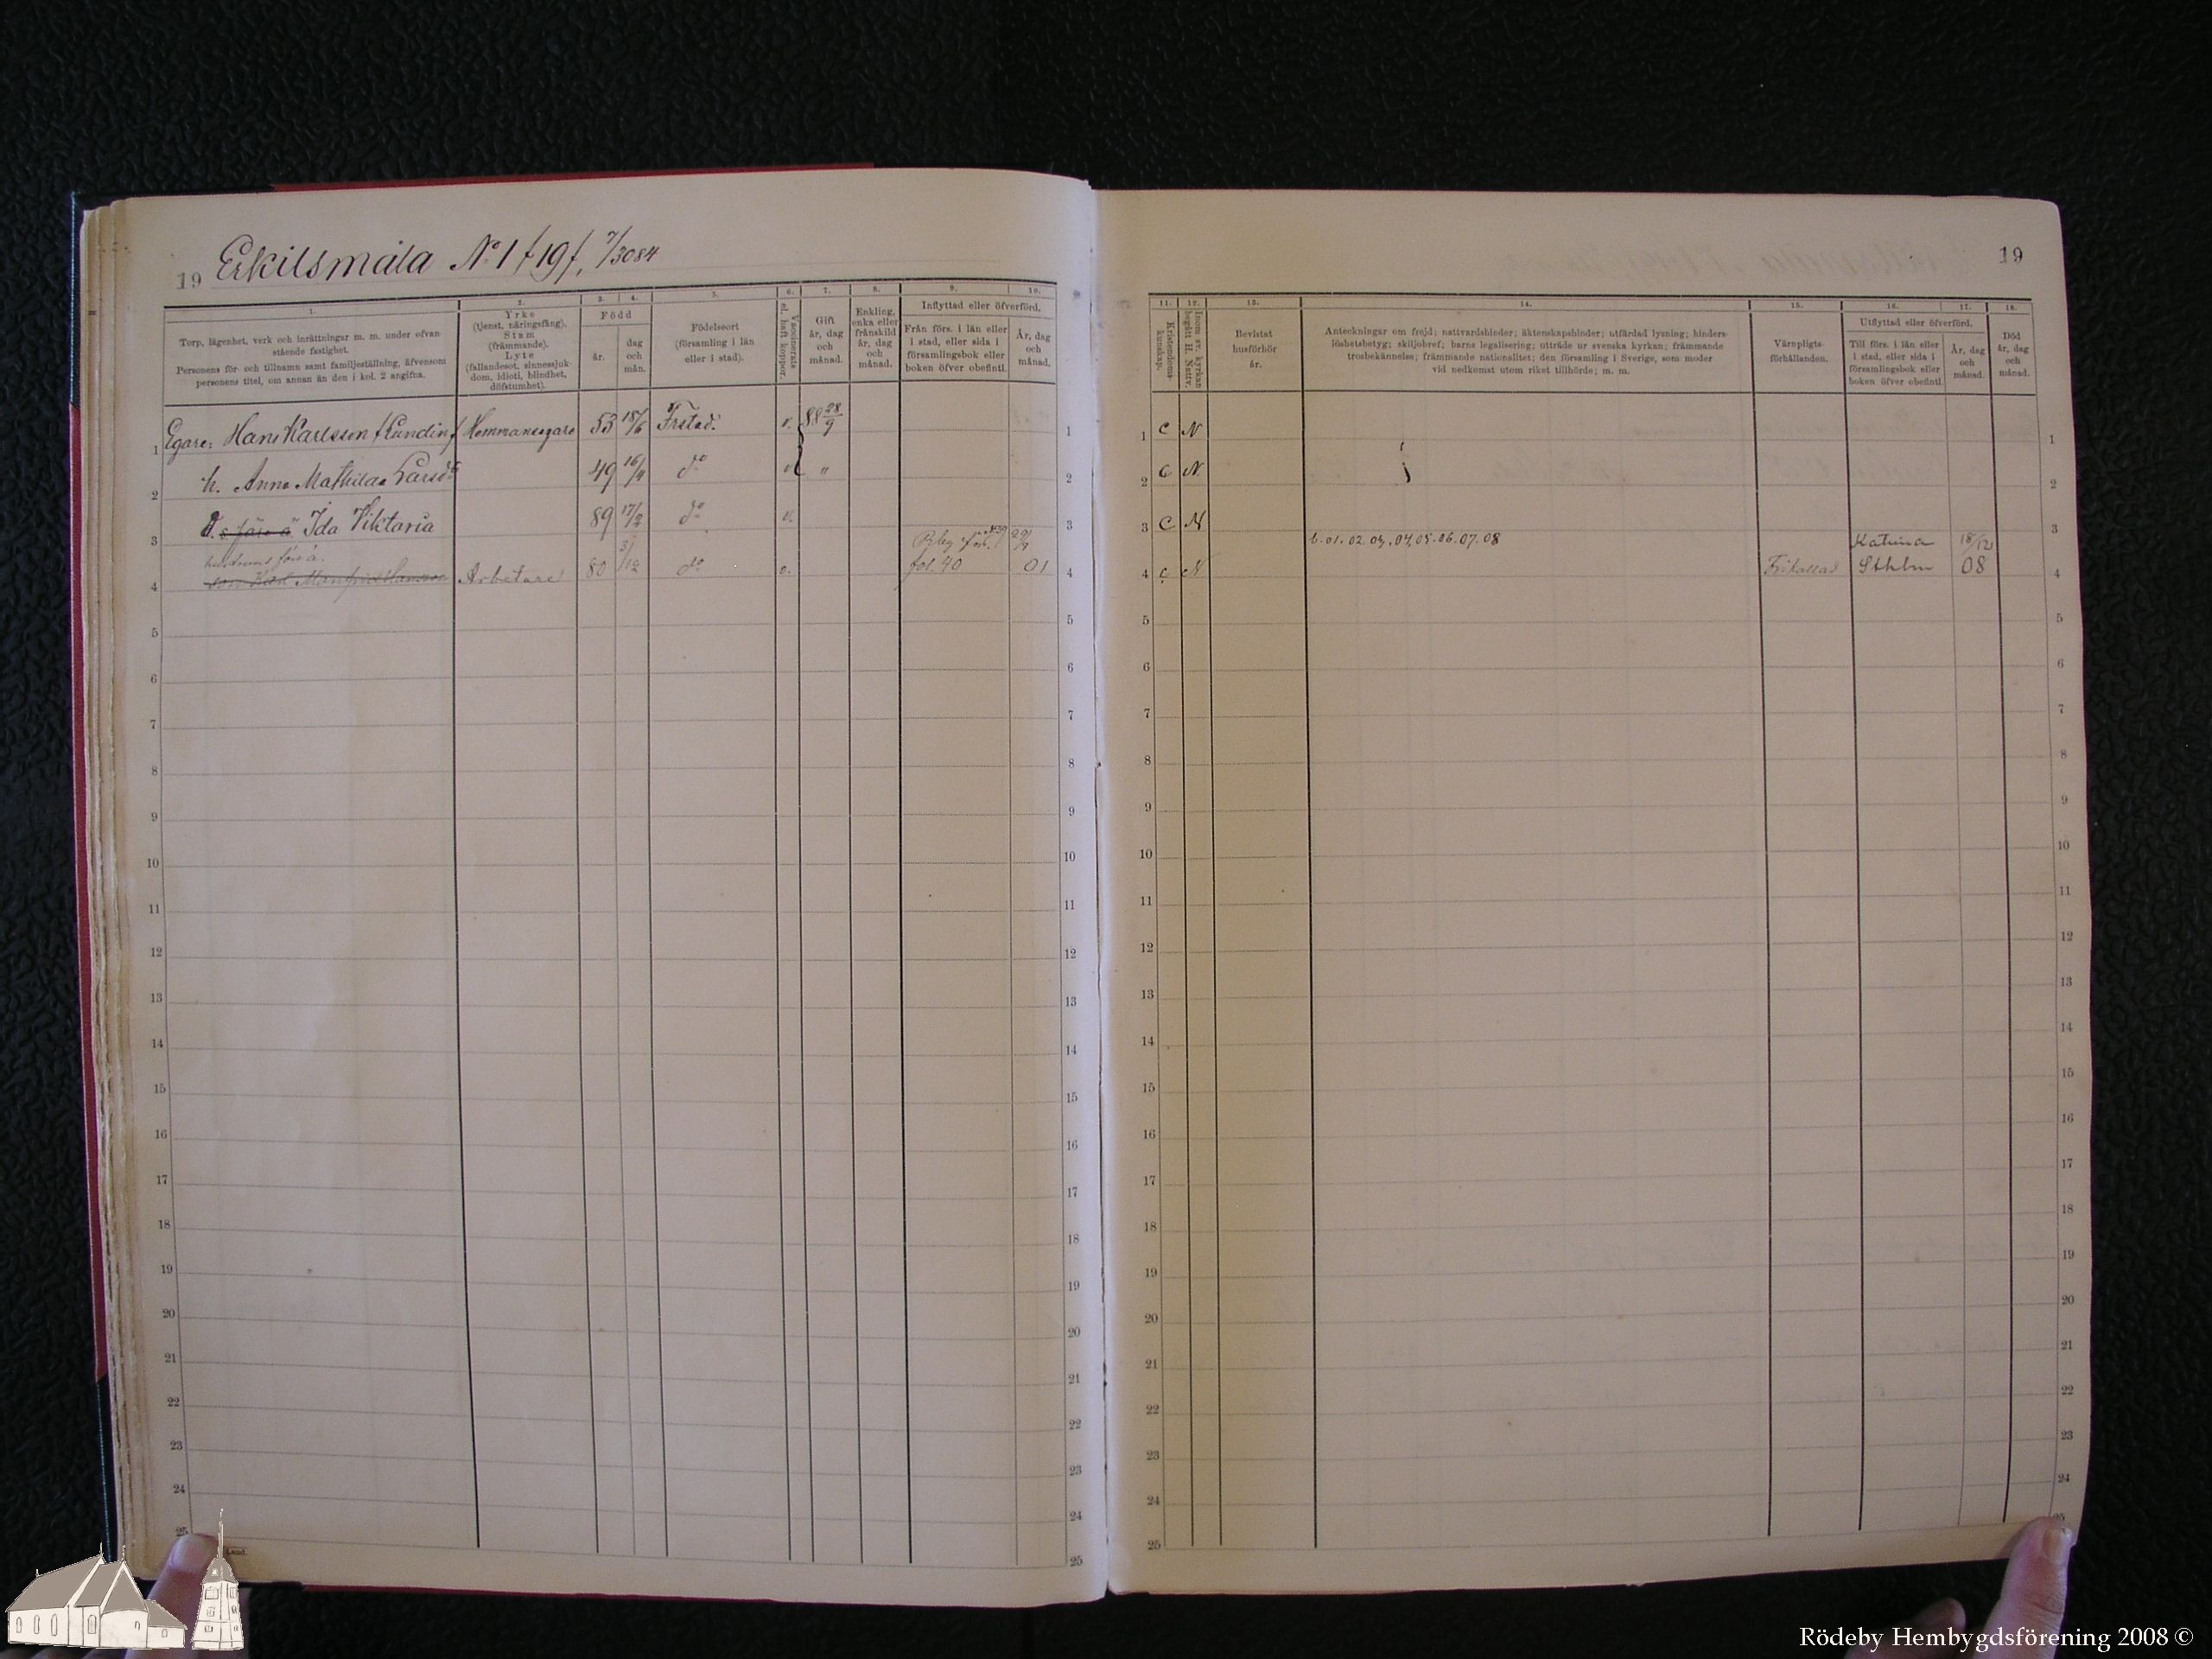 19 Eskilsmåla No 1 f 19 f, 7/3084
1. 2. 3. 4. 5. 6. 7. 8. 9. 10.
Torp, lägenhet, verk och inrättningar m. m. under ofvan
stående fastighet.
Personens för- och tillnamn samt familjeställning, äfvensom
personens titel, om annan än den i kol. 2 angifna.
Yrke
(tjenst, näringsfång).
Stam
(främmande).
Lyte
(fallandesot, sinnessjuk-
dom, idioti, blindhet,
döfstumhet).
Född
år.
dag
och
mån.
Födelseort
(församling i län
eller i stad).
Vaccinerats
el. haft koppor.
Gift
år, dag
och
månad.
Enkling,
enka eller
frånskild
år, dag
och
månad.
Inflyttad eller öfverförd,
Från förs. i län eller
i stad, eller sida i
församlingsbok eller
boken öfver obefintl.
År, dag
och
månad.
1 Egare: Hans Karlsson (Lundin) Hemmansegare 53 18/6 Frstad. v. 88 28/9 1
2 h. Anna Mathilda Larsdr 49 16/4 do v. " 2
3 d. s. före ä. Ida Viktoria 89 17/2 do v. 3
hustruns före ä.
4 son Karl Manfrid Hansson Arbetare 80 3/12 do v. fol. 40 01 4
5 5
6 6
7 7
8 8
9 9
10 10
11 11
12 12
13 13
14 14
15 15
16 16
17 17
18 18
19 19
20 20
21 21
22 22
23 23
24 24
25 25
19
11. 12. 13. 14. 15. 16. 17. 18.
Kristendoms-
kunskap.
Inom sv. kyrkan
begått H. Nattv.
Bevistat
husförhör
år.
Anteckningar om frejd; nattvardshinder; äktenskapshinder; utfärdad lysning; hinders-
löshetsbetyg; skiljobref; barns legalisering; utträde ur svenska kyrkan; främmande
trosbekännelse; främmande nationalitet; den församling i Sverige, som moder
vid nedkomst utom riket tillhörde; m. m.
Värnpligts-
förhållanden.
Utflyttad eller öfverförd.
Till förs. i län eller
i stad, eller sida i
församlingsbok eller
boken öfver obefintl.
År, dag
och
månad.
Död
år, dag
och
månad.
1 C N 1
2 C N. 2
3 C N 3
b. 01. 02. 03. 04. 05. 06. 07. 08 Katarina 18/12
4 C N Frikallad Sthlm 08 4
5 5
6 6
7 7
8 8
9 9
10 10
11 11
12 12
13 13
14 14
15 15
16 16
17 17
18 18
19 19
20 20
21 21
22 22
23 23
24 24
25 25
Rödeby Hembygdsförening 2008 ©